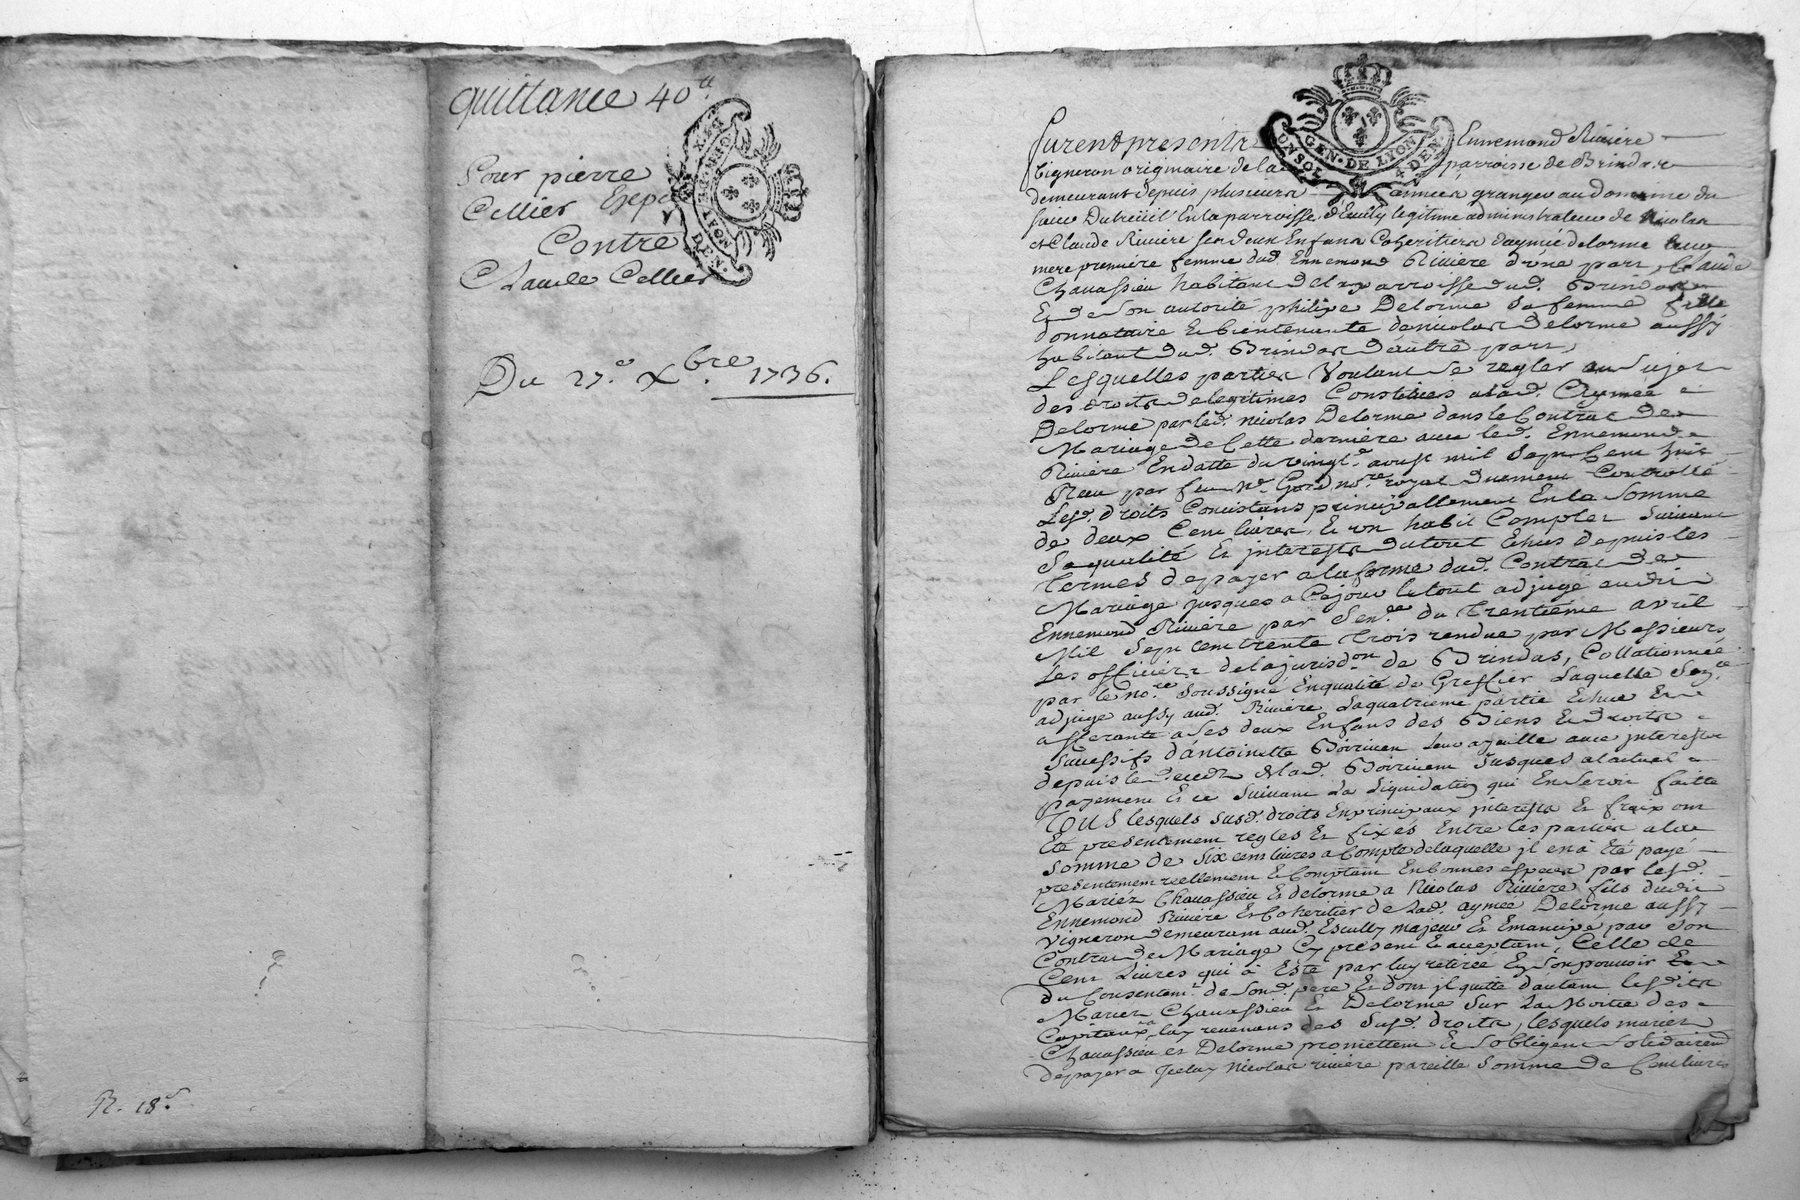 quittance 40ᵗᵗ
Pour pierre
Cellier Exped
Contre
Claude Cellier
Du 27.e Xbre. 1736.
R. 18s
GEN. DE LYON
GEN. DE LYON
4 DEN.
furent presents Ennemond Riviere
Vigneron originaire de la parroisse de Brindas
demeurant depuis plusieurs années granger au domaine du
sieur Dutreüil En la parroisse d'Escully legitime administrateur de Nicolas
et Claude Riviere ses deux Enfans Coheritiers d'aymée delorme leur
mere premiére femme dud. Ennemond Riviere d'une part, Claude
Chavassieu habitant de la parroisse dud. Brindas
Et de son autorité philipe Delorme sa femme fille
donnataire Et bientenante de nicolas Delorme aussy
habitant dud. Brindas d'autre part,
Lesquelles parties Voulant se regler au sujet
des droits de legitimes Constitués a lad. Aymée
Delorme par led. nicolas Delorme dans le Contrat de
Mariage de Cette derniere avec led. Ennemond
Riviére En datte du vingt. aoust mil sept Cent huit
Receu par feu Me. Gord nore. royal duement Controllé
Lesd. droits Concistans principallement En la somme
de deux Cent livres, Et un habit Complet suivant
sa qualité Et interests du tout Echus depuis les
termes de payer a la forme dud. Contrat de
Mariage jusques a Ce jour le tout adjugé audit
Ennemond Riviére par Sence du trentieme avril
Mil Sept cent trente trois rendue par Messieurs
Les officiers de la jurisdon de Brindas, Collationnée
par le nore. soussigné En qualité de Greffier Laquelle Sence
adjuge aussy aud. Riviére La quatrieme partie Echue Et
afferante a ses deux Enfans des Biens Et droits
Successifs d'antoinette Boiriven leur ayeulle avec interests
depuis le deceds de lad. Boiriven Jusques a l'actuel
payement Et ce suivant La Liquidation qui En seroit faitte
TOUS lesquels susd. droits En principaux interests Et fraix ont
Eté presentement reglés Et fixés Entre les parties a la
somme de Six cent livres a Compte de laquelle il en à Eté payé
presentement reellement Et Comptant En bonnes especes par lesd.
Mariez Chavassieu Et delorme a Nicolas Riviere fils dudit
Ennemond Riviere Et Coheritier de Lad. aymée Delorme aussy
Vigneron demeurant aud. Escully majeur Et Emancipé par son
Contrat de Mariage Cy present Et acceptant, Celle de
Cent Livres qui à Esté par luy retirée En son pouvoir
du Consentemt. de sond. pere Et dont il quitte d'autant lesdits
Mariez Chavassieu Et Delorme Sur La Moitié des
Capitaux a luy revenans des susd. droits, lesquels mariés
Chavassieu et Delorme promettent Et s'obligent solidairemt
de payer a Jceluy Nicolas riviére pareille somme de Cent livres